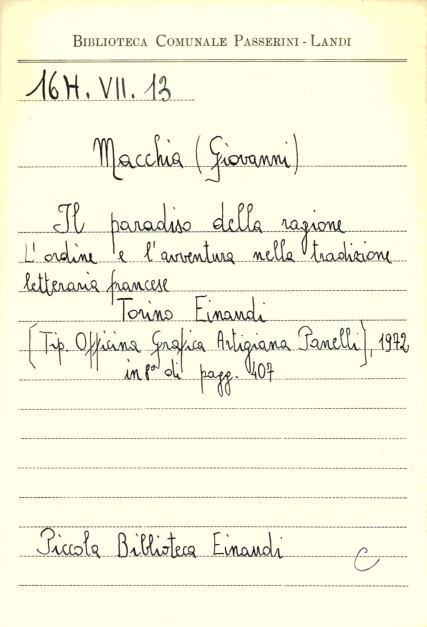 BIBLIOTECA COMUNALE PASSERINI - LANDI
16H. VII. 13
Macchia (Giovanni)
Il paradiso della ragione
L'ordine e l'avventura nella tradizione
letteraria francese
Torino Einaudi
[Tip. Officina Grafica Artigiana Panelli], 1972
in 8° di pagg. 407
Piccola Biblioteca Einaudi
C